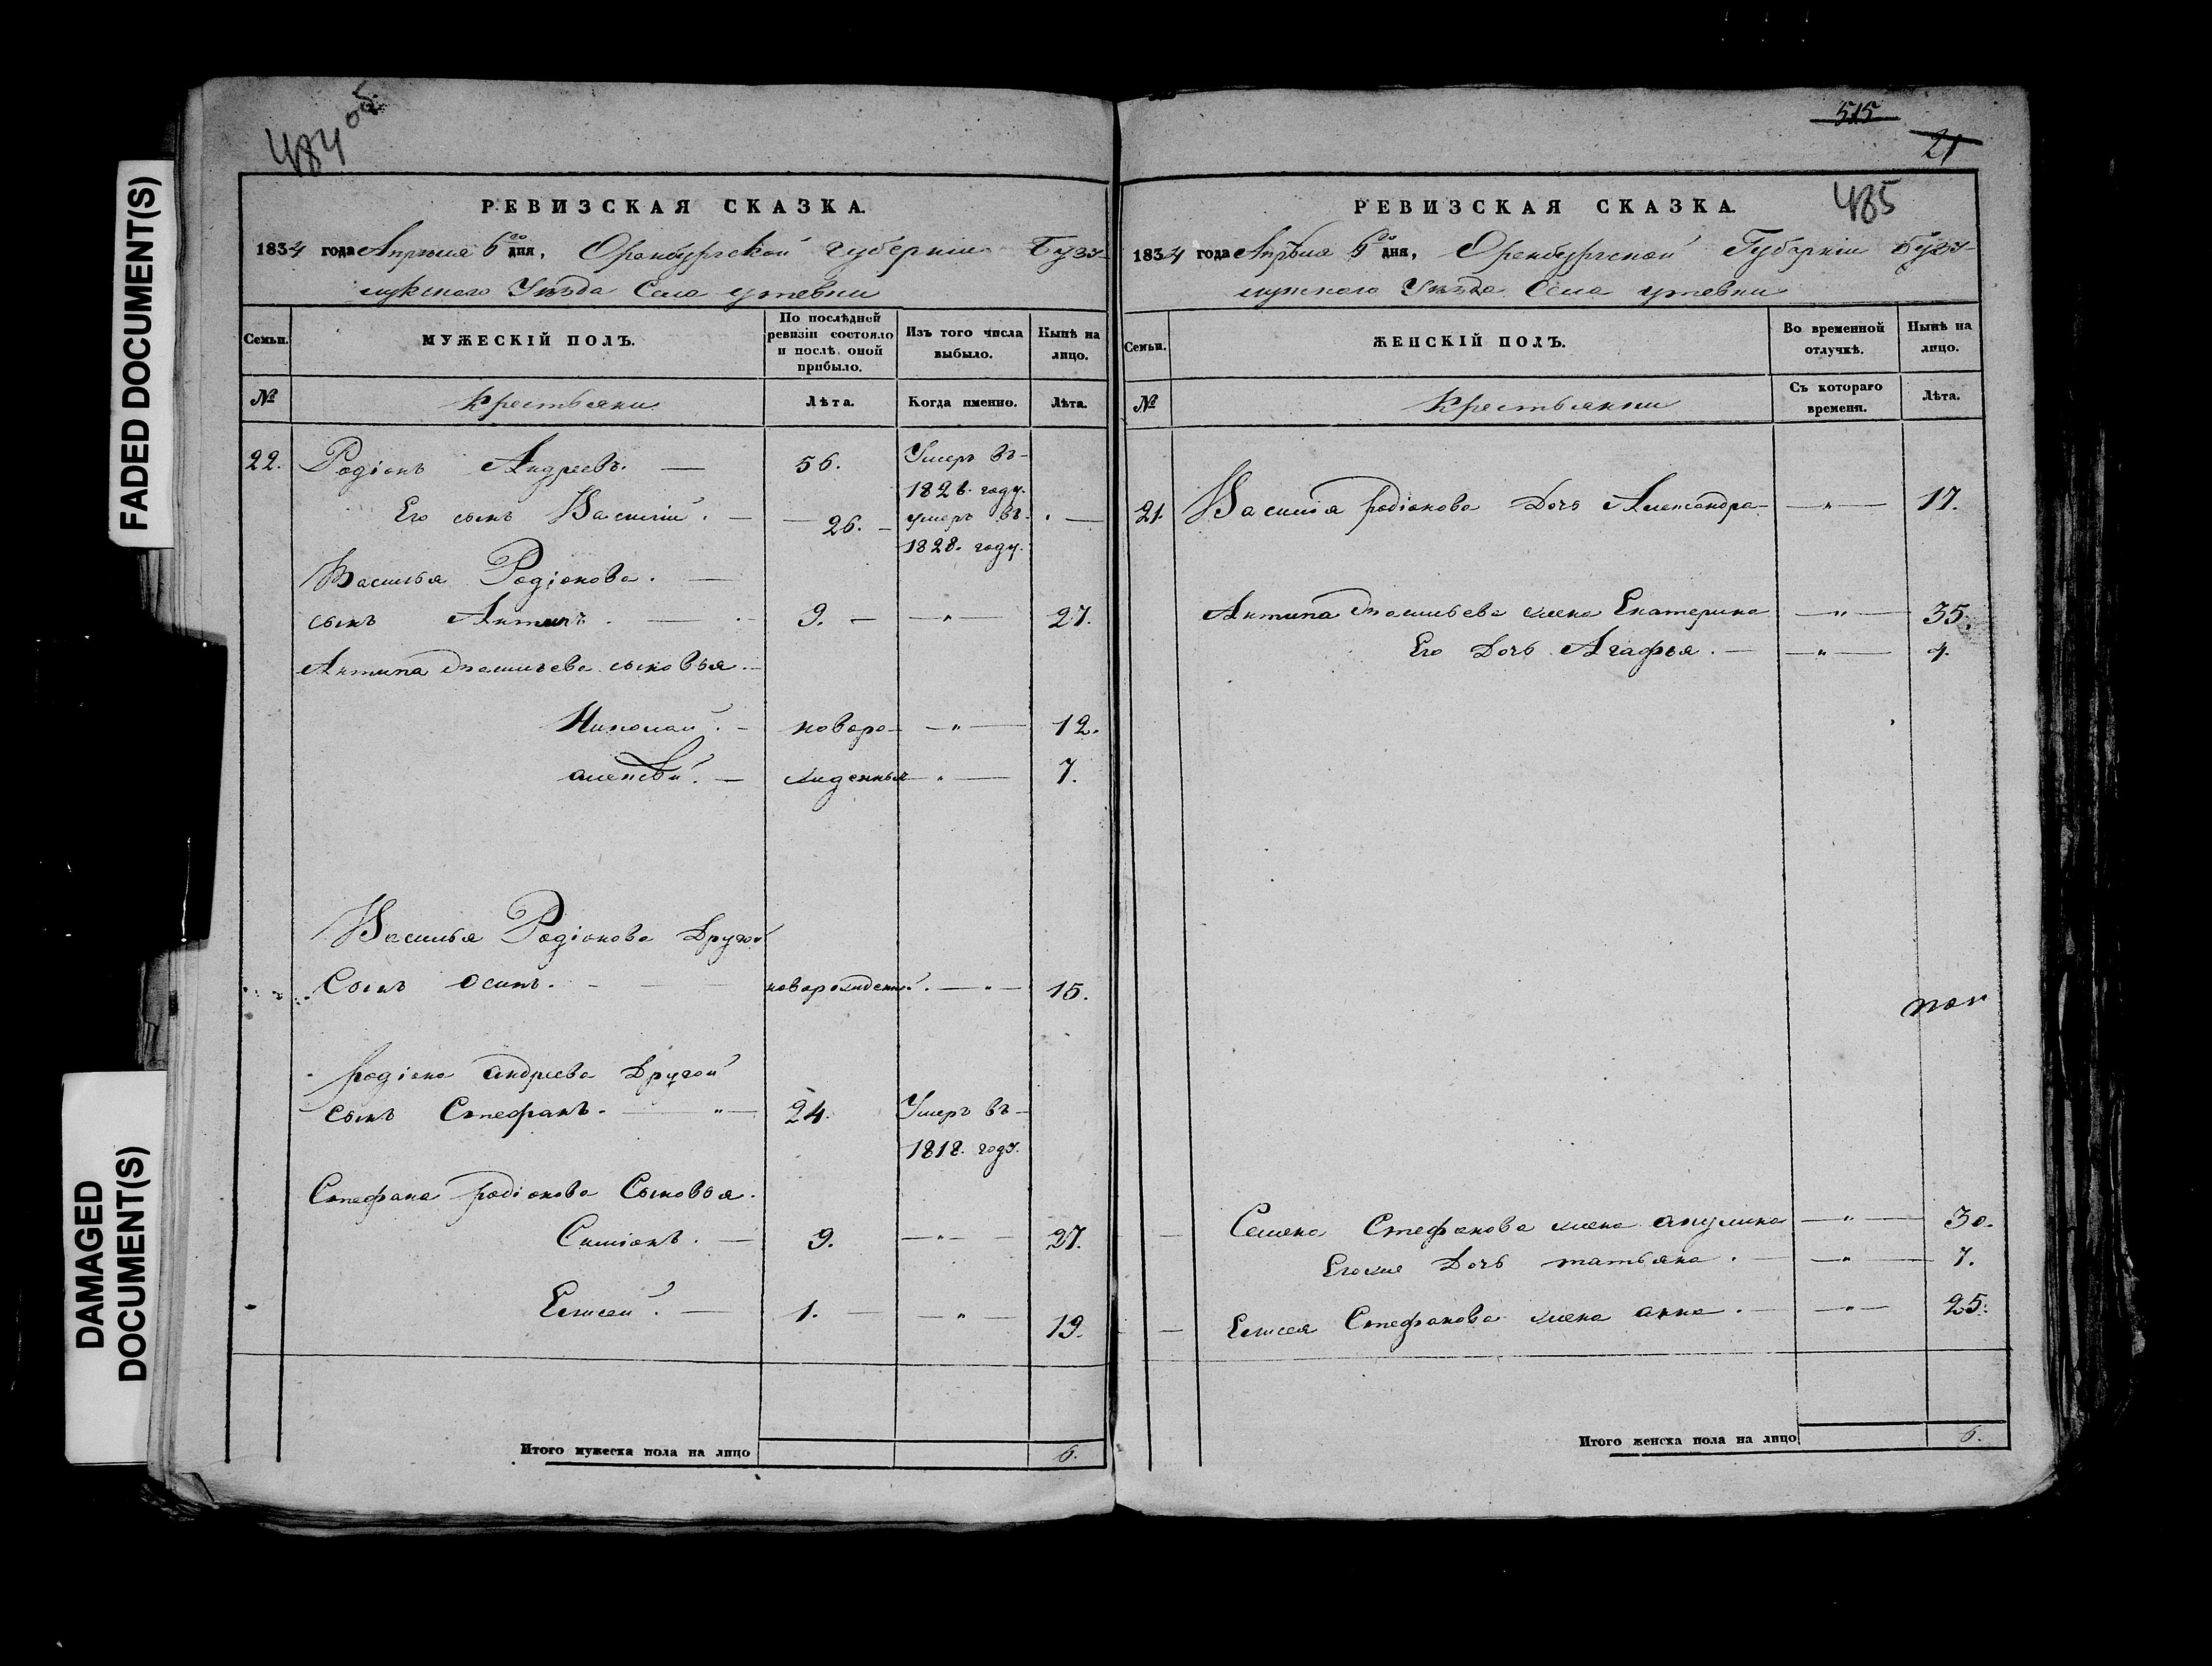 FADED DOCUMENT(S)
DAMAGED
DOCUMENT(S)
484 об
РЕВИЗСКАЯ СКАЗКА.
1834 года Апреля 6го дня, Оренбургской губернии Бузу-
лукского Уѣзда Села утевки
Семьи.
МУЖЕСКІЙ ПОЛЪ.
По послѣдней
ревизіи состояло
и послѣ оной
прибыло.
Изъ того числа
выбыло.
Нынѣ на
лицо.
№
Крестьяни
Лѣта.
Когда именно.
Лѣта.
22. Родіонъ Андреевъ. — 56. Умеръ въ
1826. году.
Его сынъ Василій. — 26. — умеръ въ
1828. году.
Василья Родіонова.
сынъ Антипъ. — 9. — 27.
Антипа Васильева сыновья.
Николай. — новоро- — " — 12.
алексѣй. — жденныя — " — 7.
Василья Родіонова Другой
Сынъ Осипъ. — новорожденной. — " — 15.
Родіона андреева Другой
сынъ Стефанъ. — " — 24. Умеръ въ
1818. году.
Стефана Родіонова Сыновья.
Симіонъ. — 9. — " — 27.
Елисей. — 1. — " — 19.
Итого мужеска пола на лицо 6.
515
21
485
РЕВИЗСКАЯ СКАЗКА.
1834 года Апрѣля 6го дня, Оренбургской Губерніи Бузу-
лукского Уѣзда Села утевки
Семьи.
ЖЕНСКІЙ ПОЛЪ.
Во временной
отлучкѣ.
Нынѣ на
лицо.
№
Крестьянки
Съ котораго
времени.
Лѣта.
21. Василія Родіонова Дочь Александра — " — 17.
Антипа Васильева жена Екатерина — " — 35.
Его Дочь Агафья. — " — 4.
Семена Стефанова жена акулина — " — 30.
Егоже Дочь татьяна. — " — 7.
Елисея Стефанова жена анна. — " — 25.
Итого женска пола на лицо 6.